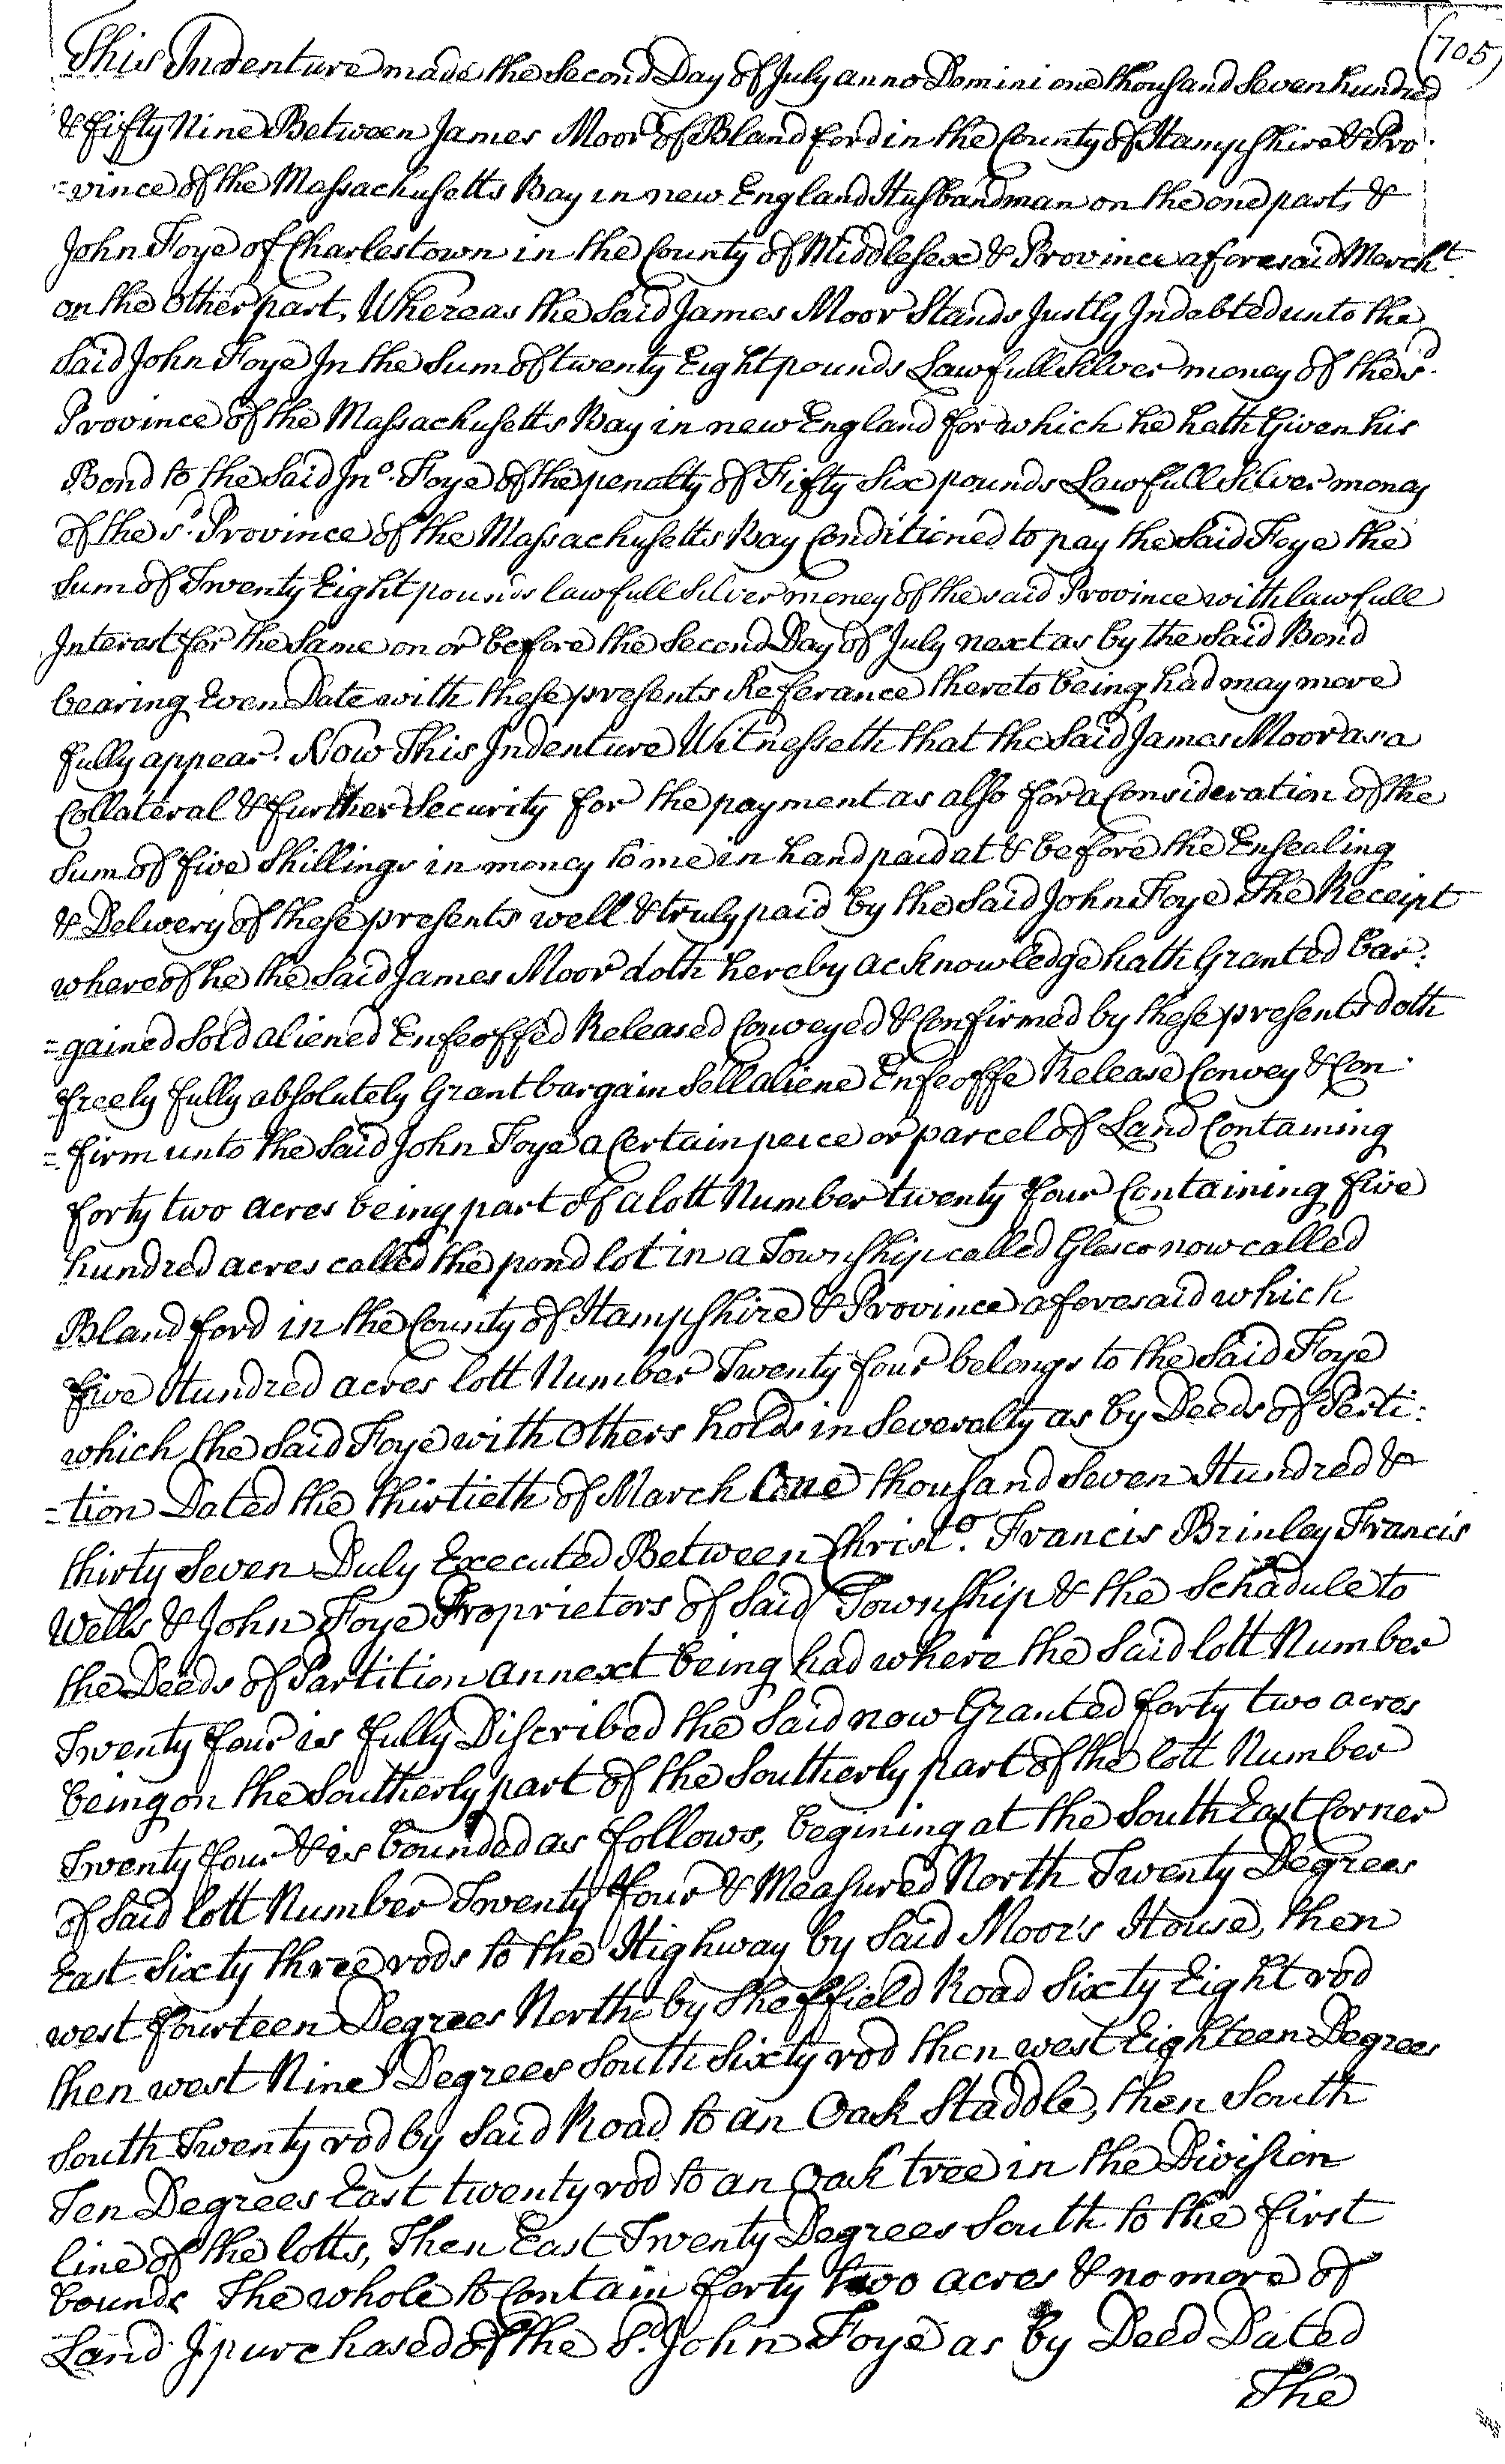 (705)
This Indenture made the Second Day of July anno Domini one thousand Seven hundred
& fifty Nine Between James Moor of Blandford in the County of Hampshire & Pro-
=vince of the Massachusetts Bay in new England Husbandman on the one part, &
John Foye of Charlestown in the County of Middlesex & Province aforesaid Mercht.
on the other part, Whereas the Said James Moor Stands Justly Indebted unto the
Said John Foye In the Sum of twenty Eight pounds Lawfull Silver money of the sd.
Province of the Massachusetts Bay in new England for which he hath Given his
Bond to the Said Jno. Foye of the penalty of Fifty Six pounds Lawfull Silver money
of the sd. Province of the Massachusetts Bay Conditioned to pay the Said Foye the
Sum of Twenty Eight pounds lawfull Silver money of the said Province with lawfull
Interest for the Same on or before the Second Day of July next as by the Said Bond
bearing Even Date with these presents Referance thereto being had may more
fully appear. Now This Indenture Witnesseth that the Said James Moor as a
Collateral & further Security for the payment as also for a Consideration of the
Sum of five Shillings in money to me in hand paid at & before the Ensealing
& Delivery of these presents well & truly paid by the Said John Foye The Receipt
whereof he the Said James Moor doth hereby acknowledge hath Granted bar:
=gained Sold aliened Enfeoffed Released Conveyed & Confirmed by these presents doth
freely fully absolutely Grant bargain Sell aliene Enfeoffe Release Convey & Con-
=firm unto the Said John Foye a Certain peice or parcel of Land Containing
forty two acres being part of a lott Number twenty four Containing five
hundred acres called the pond lot in a Township called Glasco now called
Blandford in the County of Hampshire & Province aforesaid which
five Hundred acres lott Number Twenty four belongs to the Said Foye
which the Said Foye with Others holds in Severalty as by Deeds of Parti:
=tion Dated the thirtieth of March One thousand Seven Hundred &
thirty Seven Duly Executed Between Christo. Francis Brinley Francis
Wells & John Foye Proprietors of Said Township & the Schadule to
the Deeds of Partition annext being had where the Said lott Number
Twenty four is fully Discribed the Said now Granted forty two acres
being on the Southerly part of the Southerly part of the lott Number
Twenty four & is bounded as follows, begining at the South East Corner
of Said lott Number Twenty four & Measured North Twenty Degrees
East Sixty three rods to the Highway by Said Moor's House, then
west fourteen Degrees North by Sheffield Road Sixty Eight rod
then west Nine Degrees South Sixty rod then west Eighteen Degrees
South Twenty rod by Said Road to an Oak Staddle, then South
Ten Degrees East twenty rod to an Oak tree in the Division
line of the lotts, Then East Twenty Degrees South to the first
bounds The whole to Contain forty two acres & no more of
Land I purchased of the Sd. John Foye as by Deed Dated
The